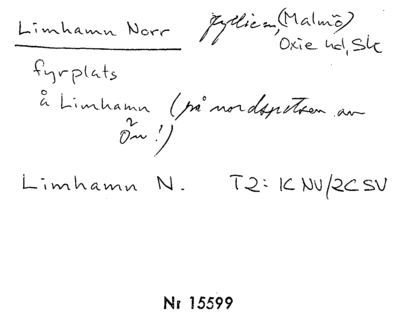 Limhamn Norr Hyllie sn, (Malmö)
Oxie hd, Sk
fyrplats
å Limhamn (på nordspetsen av
Ön!)
Limhamn N. T2: 1C NV/2C SV
Nr 15599